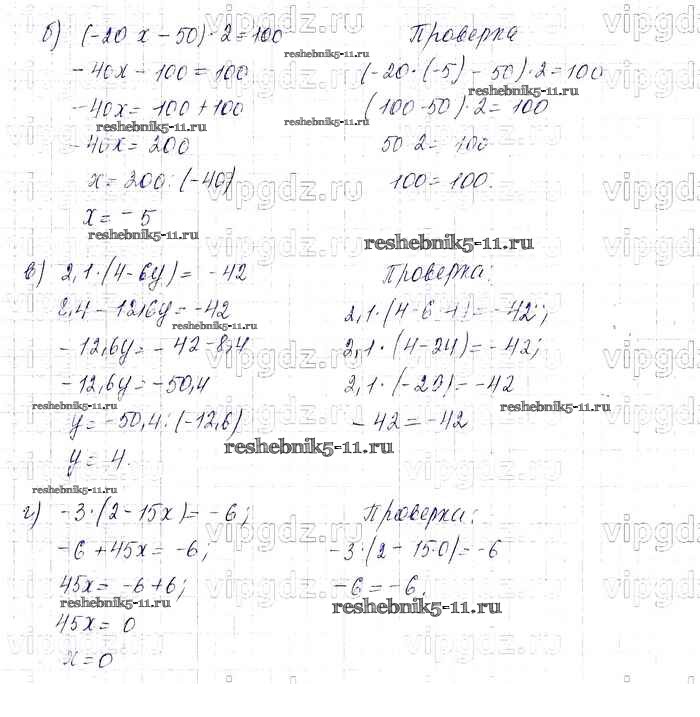 б) (-20 x - 50) · 2 = 100
-40x - 100 = 100
-40x = 100 + 100
-40x = 200
x = 200 : (-40)
x = -5
Проверка
(-20 · (-5) - 50) · 2 = 100
(100 - 50) · 2 = 100
50 · 2 = 100
100 = 100.
в) 2,1 · (4 - 6y) = -42
8,4 - 12,6y = -42
-12,6y = -42 - 8,4
-12,6y = -50,4
y = -50,4 : (-12,6)
y = 4.
Проверка:
2,1 · (4 - 6 · 4) = -42;
2,1 · (4 - 24) = -42;
2,1 · (-20) = -42
-42 = -42
г) -3 · (2 - 15x) = -6;
-6 + 45x = -6;
45x = -6 + 6;
45x = 0
x = 0
Проверка:
-3 · (2 - 15·0) = -6
-6 = -6.
vipgdz.ru
reshebnik5-11.ru